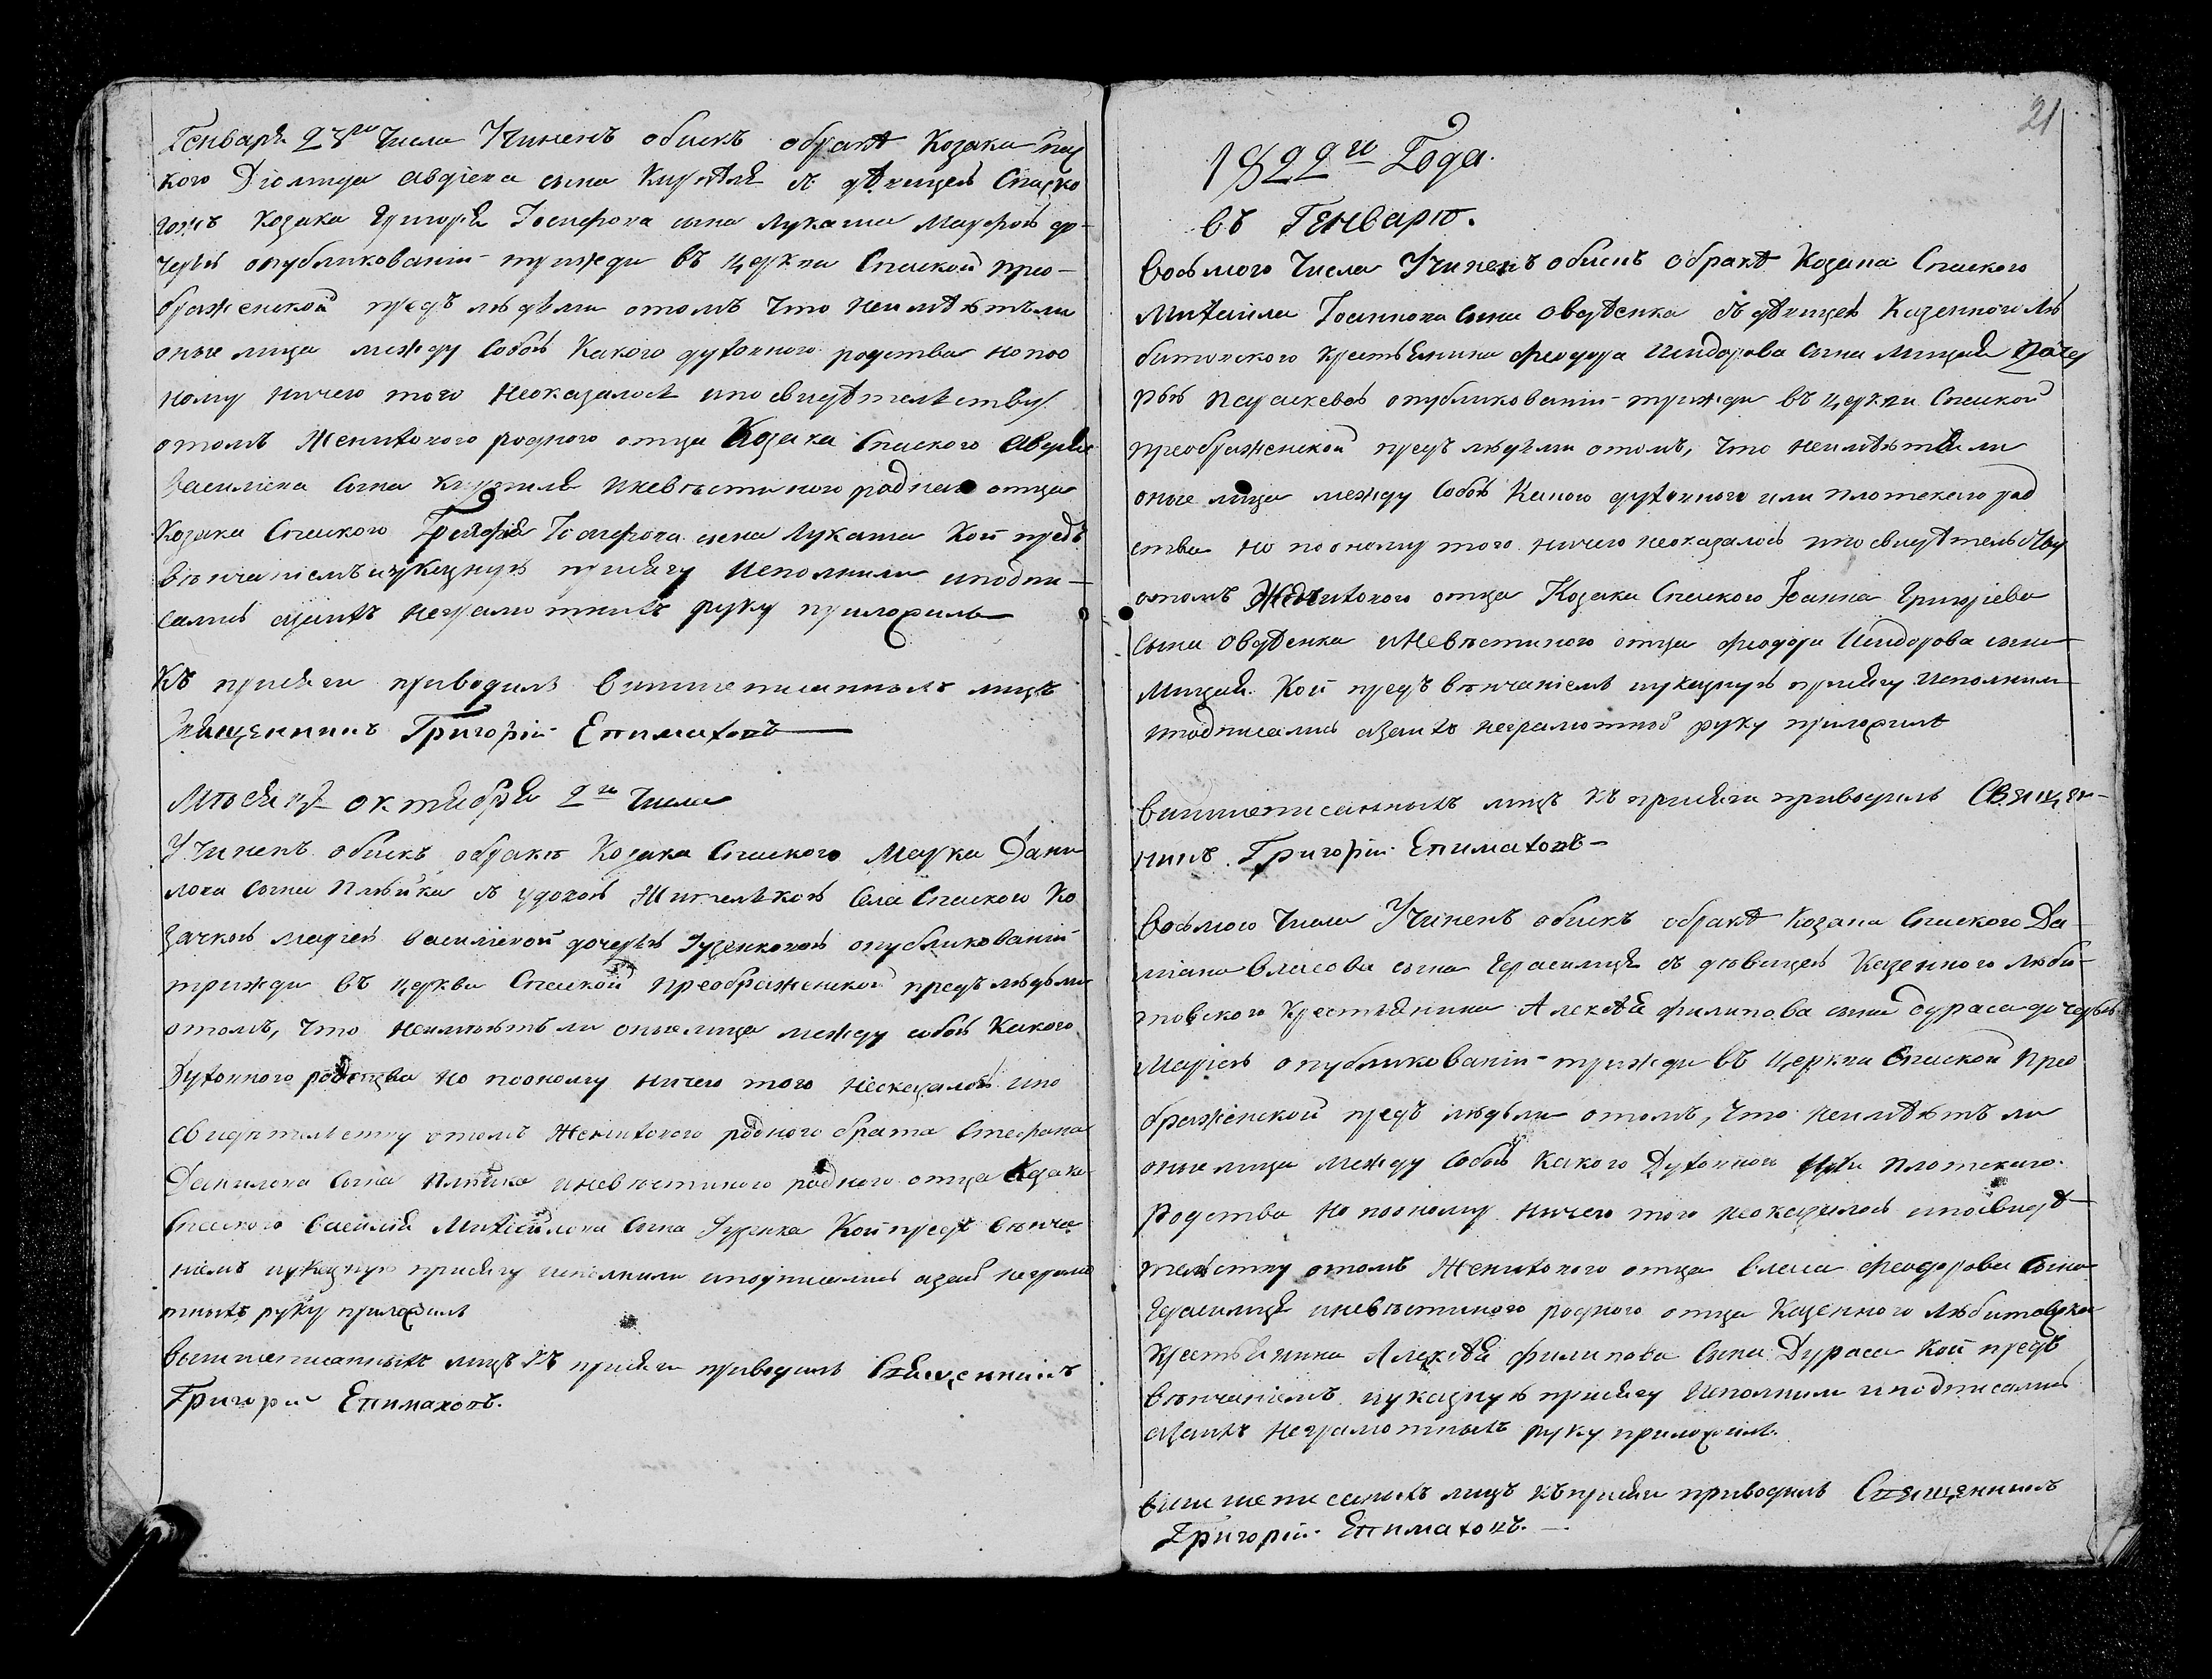 Генваря 23го Числа Учиненъ обискъ обракѣ Козака Спас
кого Дiомида Авдiева сына Кирѣля съ дѣвицею Спаско
гожъ Козака Григорiя Iосифова сына Лукаша Марфою до-
черью опубликованiи трижди въ церкви Спаской прео-
браженской предъ людьми отомъ что неимѣютъли
оные лица между собою какого духовного родства но поо
ному ничего того неоказалось ипосвидѣтельству
отомъ Женихового родного отца Козака Спаского
Василiева сына иневѣстиного родного отца
Козака Спаского Iосифова сына Лукаша Кои предъ
вѣнчанiемъ иуказную присягу исполнили иподпи-
сались азаихъ неграмотнихъ руку приложилъ
Къ присяги приводилъ вишеписанныхъ лицъ
Священникъ Григорiй Епимаховъ
Мѣсяца октября 2го Числа
Учиненъ обискъ обракѣ Козака Спаского Марка Дани
лова сына съ удовою Жителькою Села Спаского Ко
зачкою Марiею Василiевой дочерью Гузенковою опубликованiи
трижди въ церкви Спаской преображенской предъ людьми
отомъ, что неимѣютъ ли оные лица между собою какого
Духовного родства но поономy ничего того неоказалось ипо
свидѣтельству отомъ Женихового родного брата Стефана
Данилова сына иневѣстиного родного отца Козака
Спаского Василiя Михайлова сына Гузенка Кои предъ вѣнча
нiемъ иуказную присягу исполнили иподписались азаих неграмо
тныхъ руку приложилъ
Вышеписанныхъ лицъ къ присяги приводилъ Священникъ
Григорiй Епимаховъ.
21
1822го Года.
въ Генварѣ.
Восьмого Числа Учиненъ обискъ обракѣ Козака Спаского
Михайла Iоаннова сына Овдѣенка съ дѣвицею Казенного Лю
битовского крестьянина Феодора Исидорова сына Мицая доче
рью Параскевою опубликованiи трижди въ церкви Спаской
преображенской предъ людьми отомъ, что неимѣютъ ли
оные лица между собою какого духовного или плотскаго род
ства но поономy того ничего неоказалось ипосвидѣтельству
отомъ Женихового отца Козака Спаского Iоанна Григорiева
сына Овдѣенка иневѣстиного отца Феодора Исидорова сына
Мицая. Кои предъ вѣнчанiемъ иуказную присягу исполнили
иподписались азаихъ неграмотныхъ руку приложилъ
вишеписанныхъ лицъ къ присяги приводилъ Священ-
никъ Григорiй Епимаховъ
Восьмого Числа Учиненъ обискъ обракѣ Козака Спаского Да-
мiана Власова сына Герасимця съ дѣвицею Казенного Люби-
товского Крестьянина Алексѣя Филипова сына Дураса дочерью
Марiею опубликованiи трижди въ церкви Спаской Прео
браженской предъ людьми отомъ, что неимѣютъ ли
оные лица между собою какого Духовного или плотскаго
родства но поономy ничего того неоказалось ипосвидѣ
тельству отомъ Женихового отца Власа Феодорова сына
Герасимця иневѣстиного родного отца Казенного Любитовского
Крестьянина Алексѣя Филипова сына Дураса Кои предъ
вѣнчанiемъ иуказную присягу исполнили иподписались
азаихъ неграмотныхъ руку приложилъ.
вишеписаныхъ лицъ къ присяги приводилъ Священникъ
Григорiй Епимаховъ.